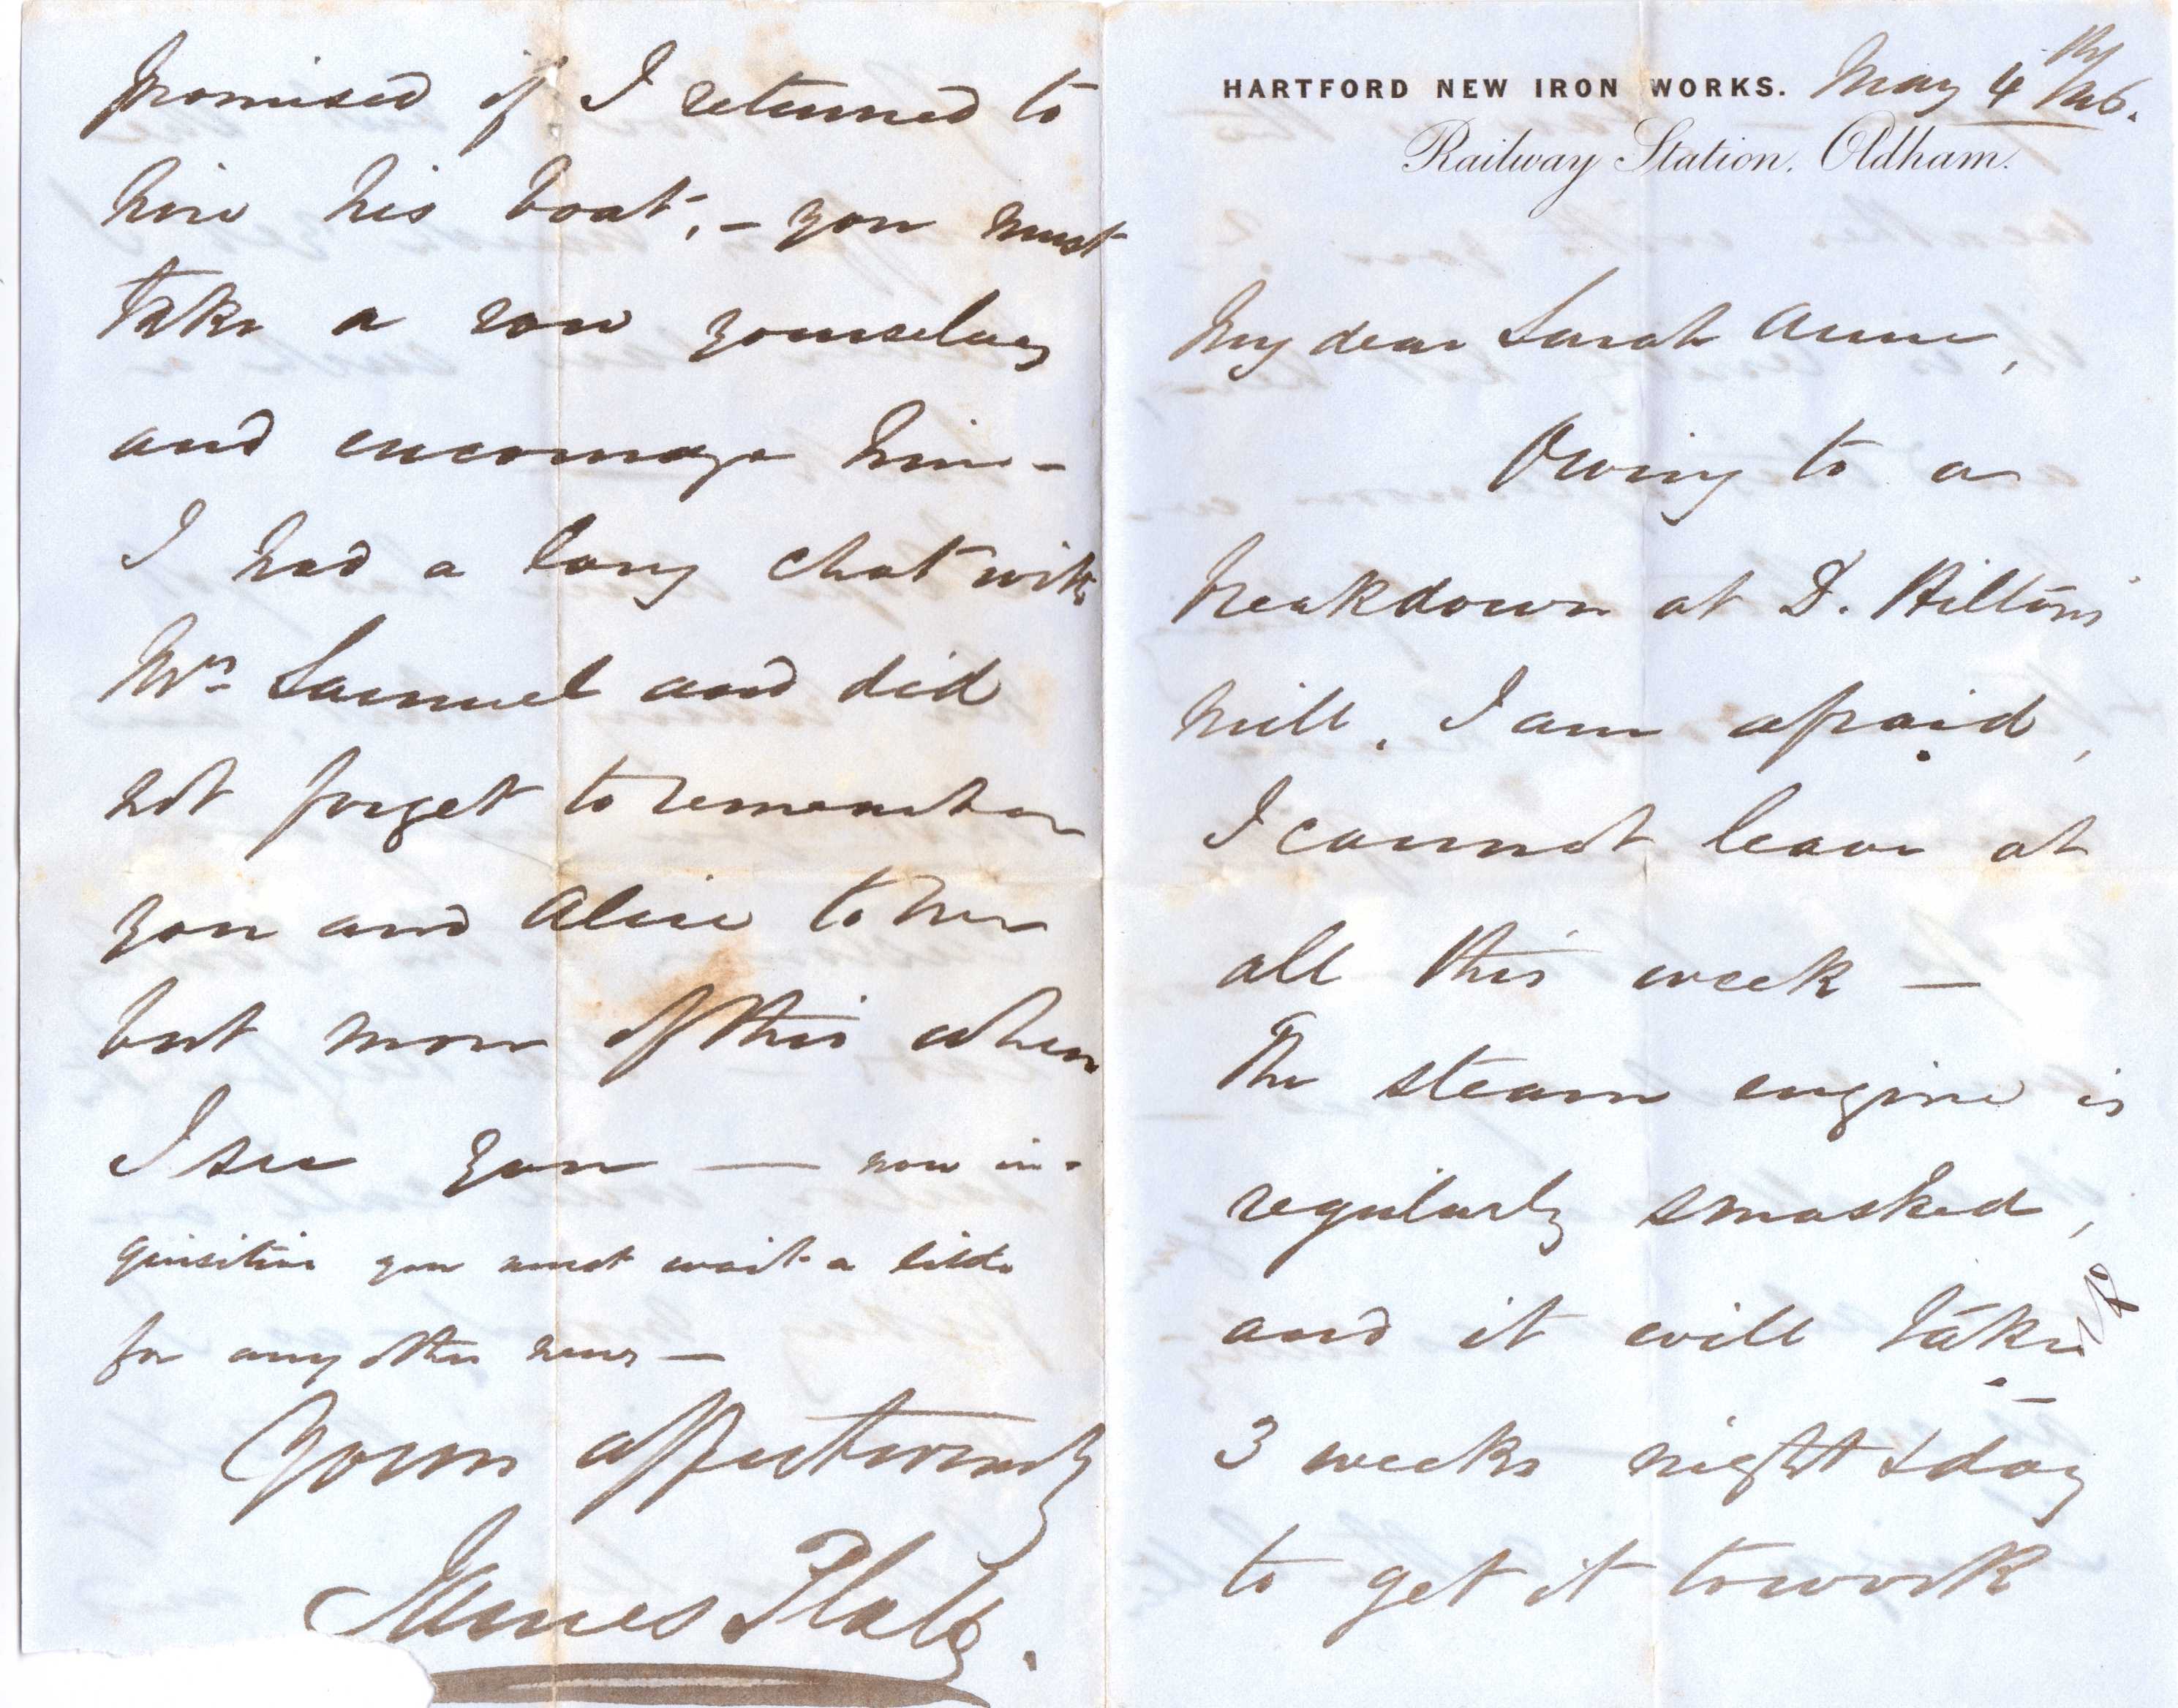 HARTFORD NEW IRON WORKS. May 4th
Railway Station, Oldham.
My dear Sarah Anne,
Owing to a
breakdown at D. Hilton's
mill, I am afraid,
I cannot leave at
all this week —
The steam engine is
regularly smashed,
and it will take
3 weeks night & day
to get it to work
promised if I returned to
hire his boat, - you must
take a row yourselves
and encourage him -
I had a long chat with
Mrs Samuel and did
not forget to remember
you and Alice to her
but more of this when
I see you — now in-
quisitive you must wait a little
for any other news —
Yours affectionately
James Platt.